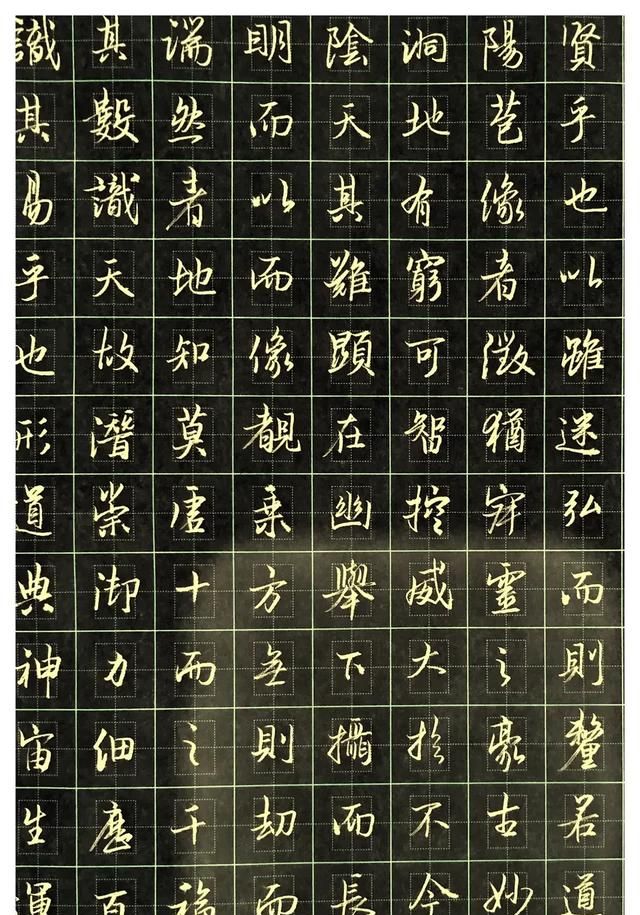 識其端明陰洞陽賢
其數然而天地苞乎
易識者以其有像也
乎天地而難窮者以
也故知像顯可徵雖
形潛莫覩在智猶迷
道崇虛乘幽控寂弘
典御十方舉威靈而
神力而無下大之則
宙細之則攝於豪釐
生歷千劫而不古若
運百福而長今妙道